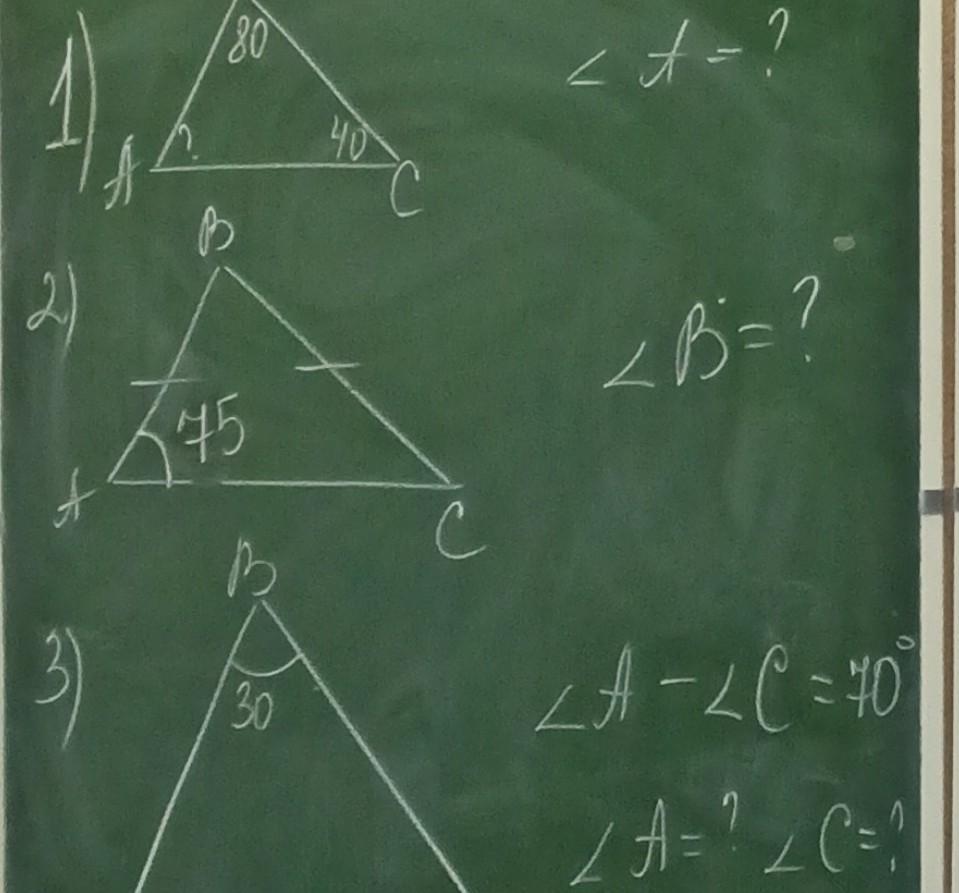 1)
80
∠A = ?
?
40
A
C
B
2)
∠B = ?
75
A
C
B
3)
30
∠A - ∠C = 70°
∠A = ? ∠C = ?